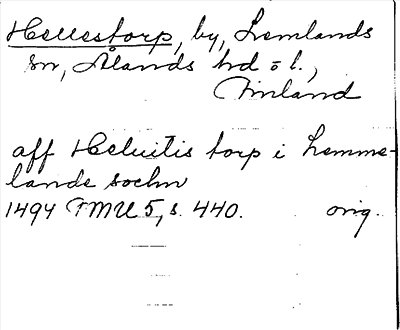 Hellestorp, by, Lemlands
sn, Ålands hd o l.,
Finland
aff Heluitis torp i Lemme-
lande sochn
1494 FMU 5, s. 440. orig.